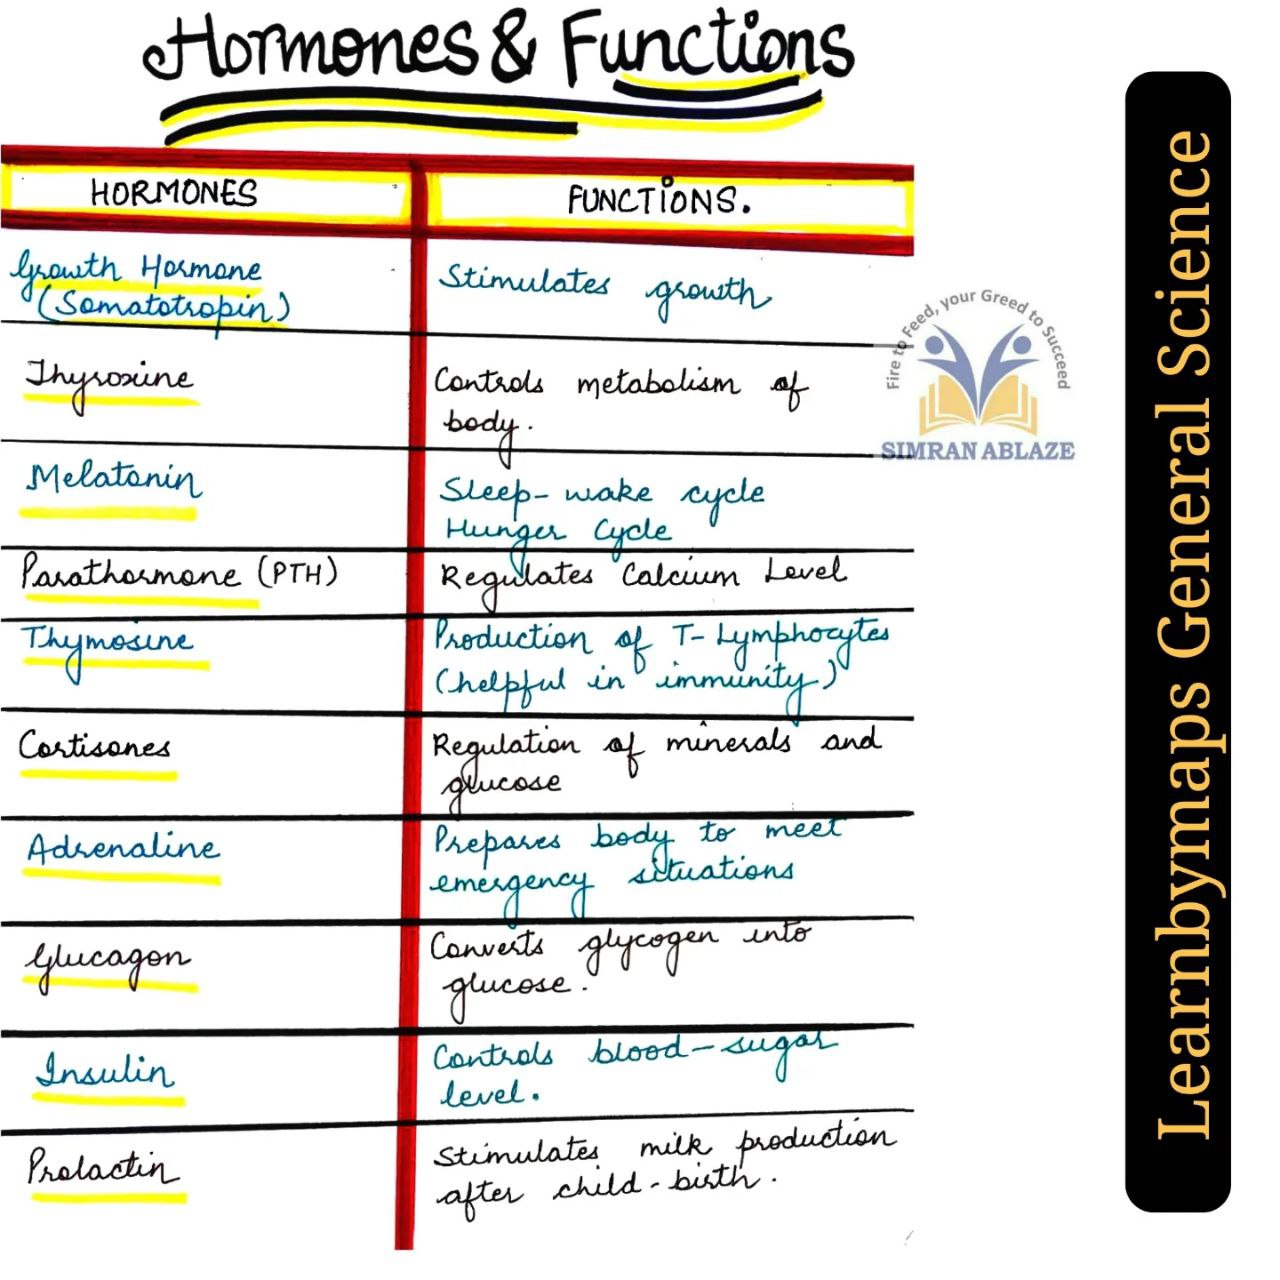 Hormones & Functions
HORMONES
FUNCTIONS.
Growth Hormone
(Somatotropin)
Stimulates growth
Thyroxine
Controls metabolism of
body.
Melatonin
Sleep-wake cycle
Hunger Cycle
Parathormone (PTH)
Regulates Calcium Level
Thymosine
Production of T-Lymphocytes
(helpful in immunity)
Cortisones
Regulation of minerals and
glucose
Adrenaline
Prepares body to meet
emergency situations
Glucagon
Converts glycogen into
glucose.
Insulin
Controls blood-sugar
level.
Prolactin
Stimulates milk production
after child-birth.
Fire to Feed, your Greed to Succeed
SIMRAN ABLAZE
Learnbymaps General Science